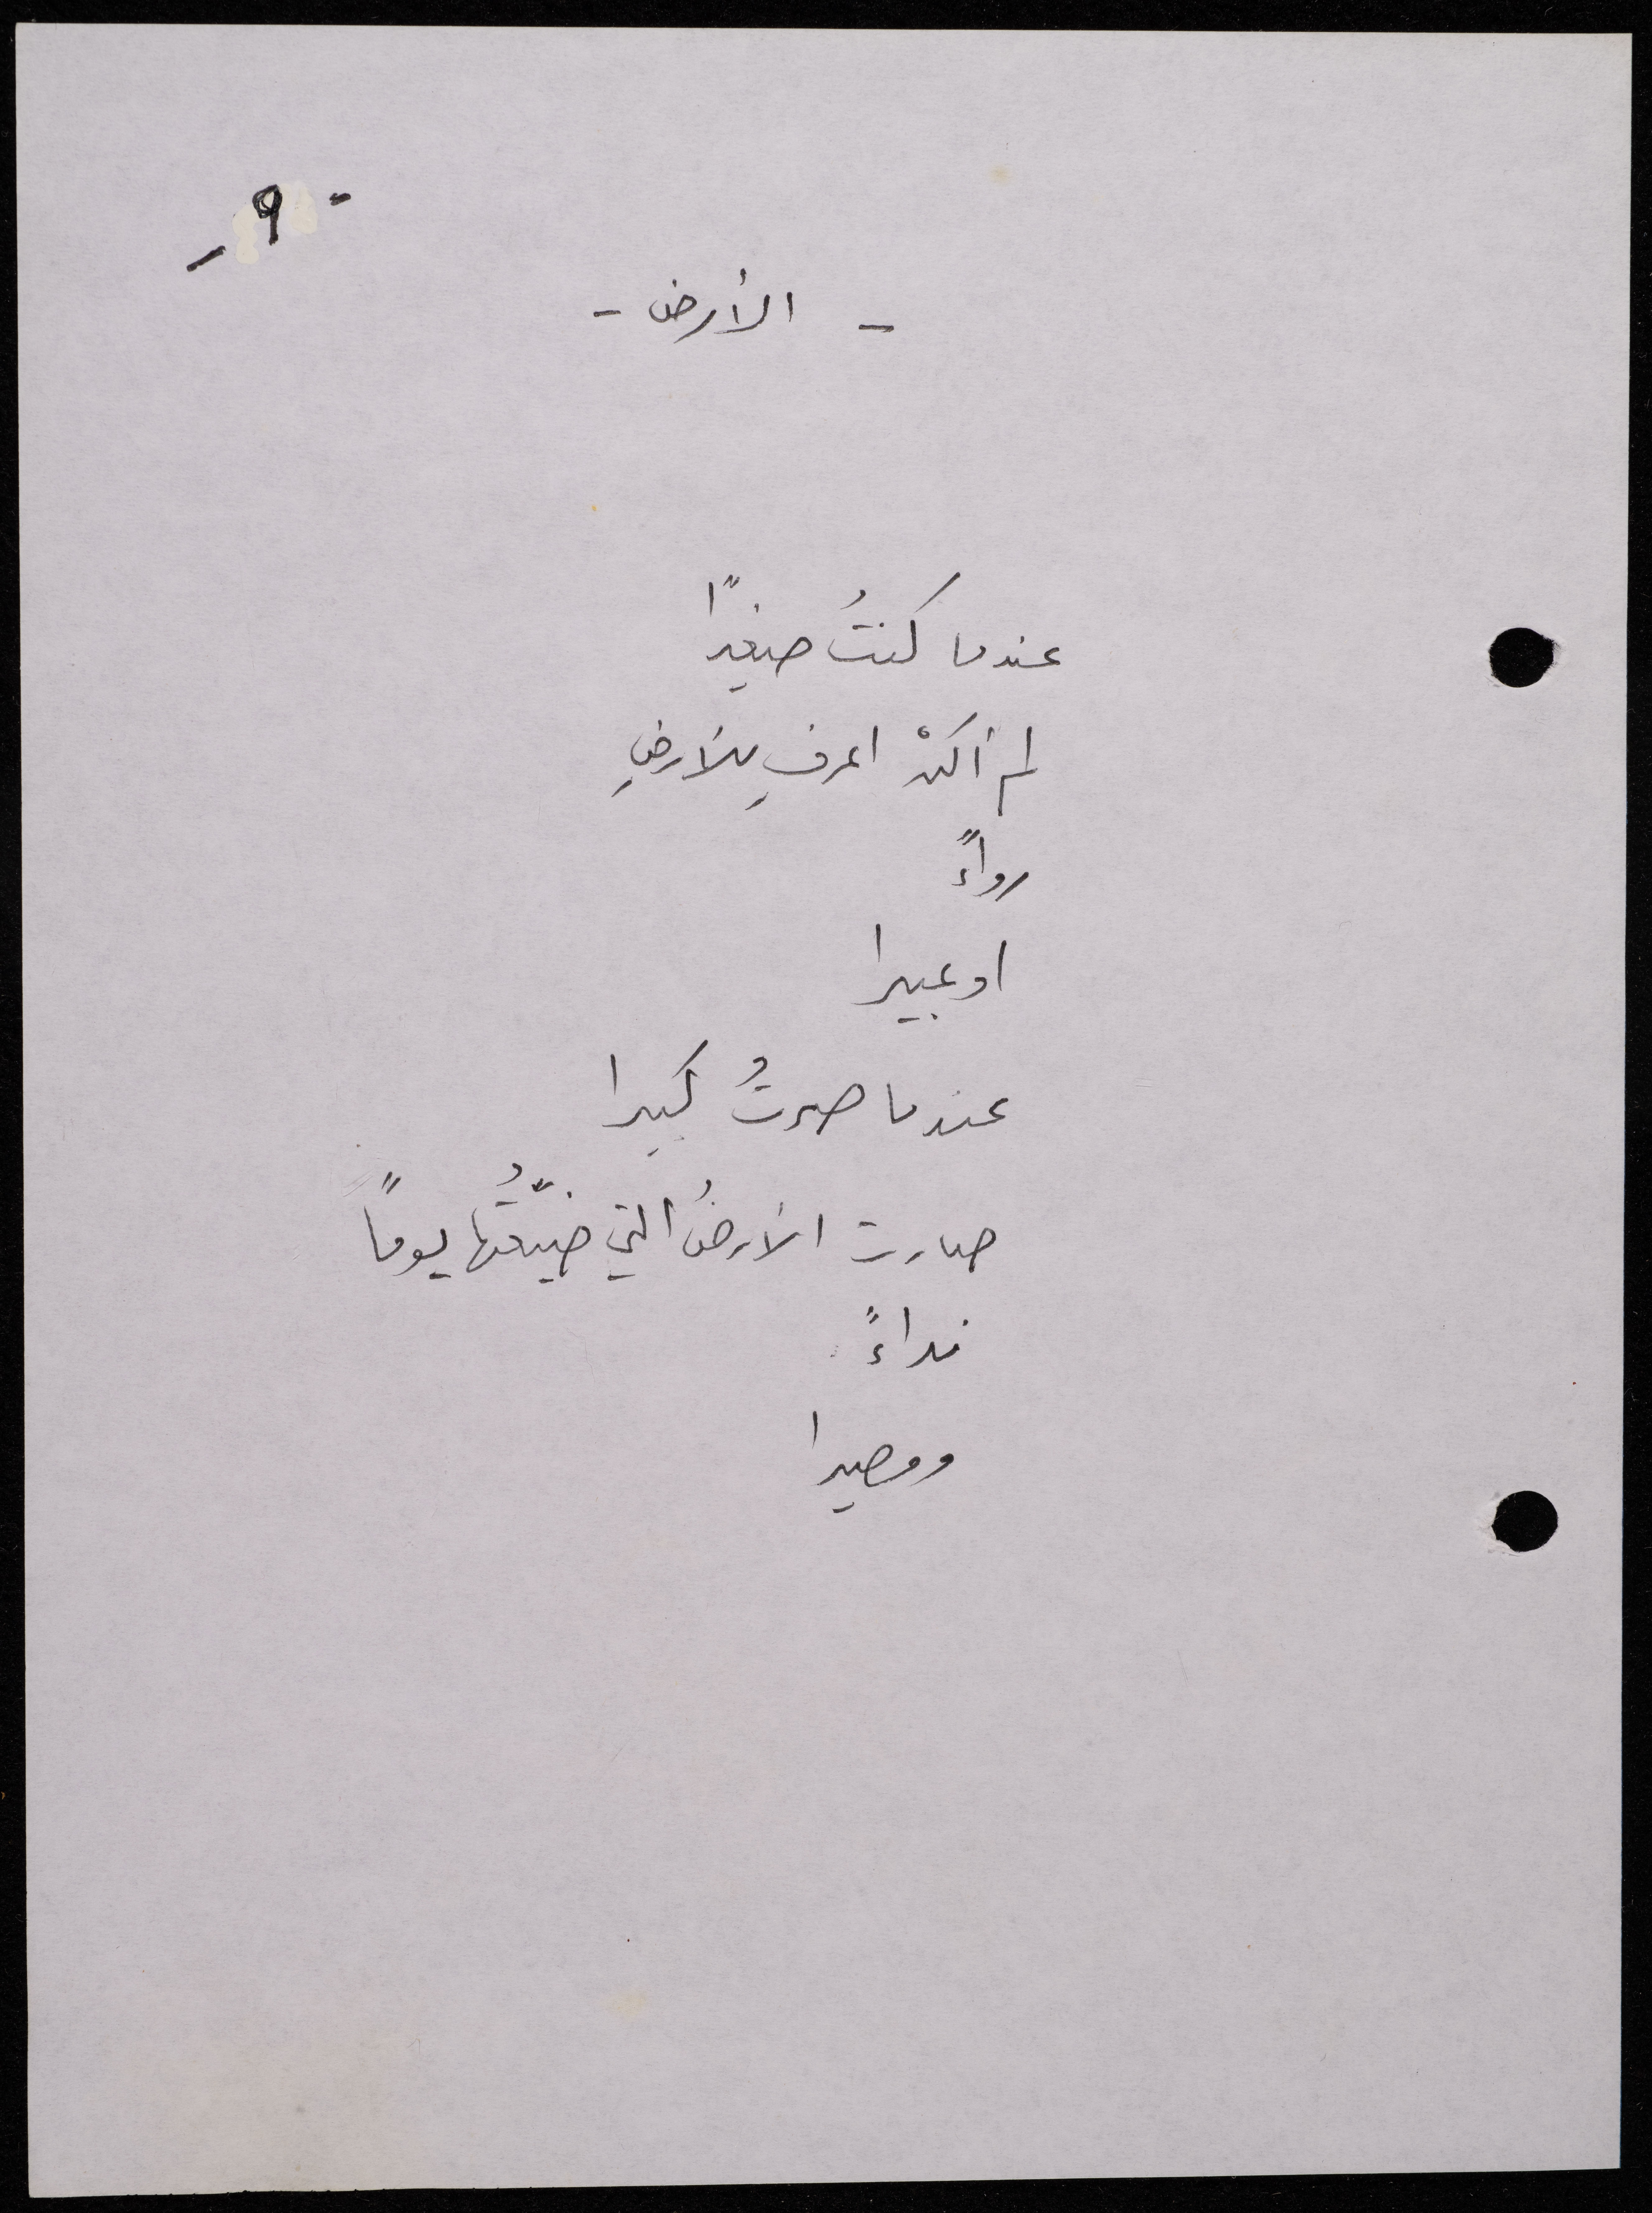 - ٩ -
- الأرض -
عندما كنتُ صغيرًا
لم أكنْ اعرف للأرضِ
رواءً
او عبيرا
عندما صرتُ كبيرا
صارت الأرضُ التي ضيّعتُها يوماً
نداءً
ومصيرا